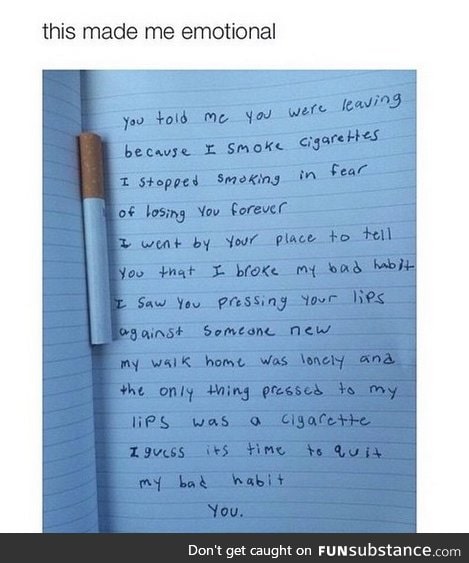 this made me emotional
you told me you were leaving
because I smoke cigarettes
I stopped smoking in fear
of losing you forever
I went by your place to tell
you that I broke my bad habit
I saw you pressing your lips
against someone new
my walk home was lonely and
the only thing pressed to my
lips was a cigarette
I guess its time to quit
my bad habit
you.
Don't get caught on FUNsubstance.com